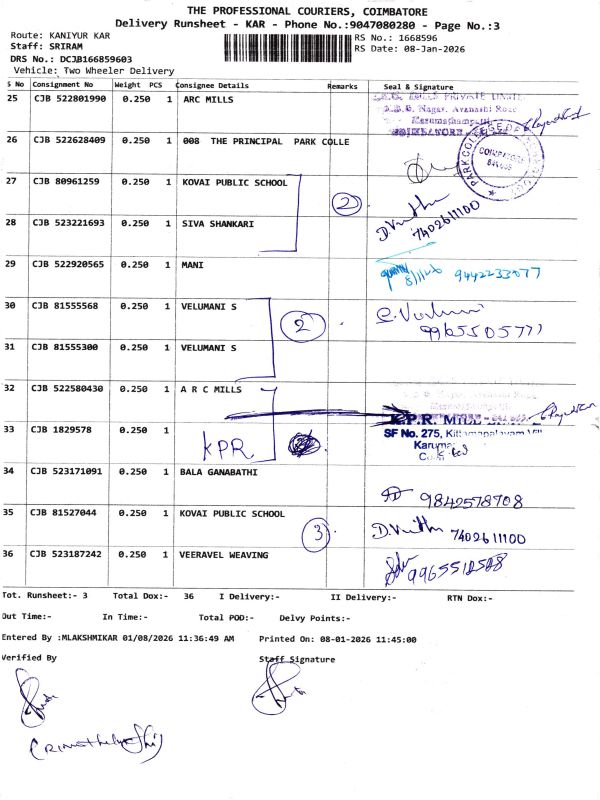 THE PROFESSIONAL COURIERS, COIMBATORE
Delivery Runsheet - KAR - Phone No.:9047080280 - Page No.:3
Route: KANIYUR KAR
RS No.: 1668596
Staff: SRIRAM
RS Date: 08-Jan-2026
DRS No.: DCJB166859603
Vehicle: Two Wheeler Delivery
S No Consignment No Weight PCS Consignee Details Remarks Seal & Signature
25 CJB 522801990 0.250 1 ARC MILLS
26 CJB 522628409 0.250 1 008 THE PRINCIPAL PARK COLLE
COIMBATORE
27 CJB 80961259 0.250 1 KOVAI PUBLIC SCHOOL
2
28 CJB 523221693 0.250 1 SIVA SHANKARI 7402611100
29 CJB 522920565 0.250 1 MANI 9442233077
30 CJB 81555568 0.250 1 VELUMANI S
2
9965505771
31 CJB 81555300 0.250 1 VELUMANI S
32 CJB 522580430 0.250 1 A R C MILLS
K.P.R. MILL
33 CJB 1829578 0.250 1
SF No. 275, Kittampalayam Vill
KPR
34 CJB 523171091 0.250 1 BALA GANABATHI 9842578708
35 CJB 81527044 0.250 1 KOVAI PUBLIC SCHOOL
3 7402611100
36 CJB 523187242 0.250 1 VEERAVEL WEAVING
Tot. Runsheet:- 3 Total Dox:- 36 I Delivery:- II Delivery:- RTN Dox:-
Out Time:- In Time:- Total POD:- Delvy Points:-
Entered By :MLAKSHMIKAR 01/08/2026 11:36:49 AM Printed On: 08-01-2026 11:45:00
Verified By Staff Signature